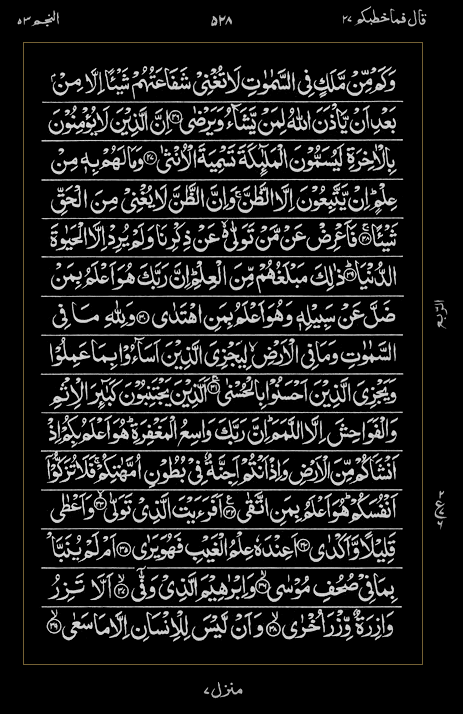 قال فما خطبكم ۲۷ ۵۲۸ النجم ۵۳
وَكَمْ مِّنْ مَّلَكٍ فِی السَّمٰوٰتِ لَا تُغْنِیْ شَفَاعَتُهُمْ شَیْـًٔا اِلَّا مِنْۢ
بَعْدِ اَنْ یَّاْذَنَ اللّٰهُ لِمَنْ یَّشَآءُ وَیَرْضٰی ﴿۲۶﴾ اِنَّ الَّذِیْنَ لَا یُؤْمِنُوْنَ
بِالْاٰخِرَةِ لَیُسَمُّوْنَ الْمَلٰٓىِٕكَةَ تَسْمِیَةَ الْاُنْثٰی ﴿۲۷﴾ وَمَا لَهُمْ بِهٖ مِنْ
عِلْمٍ ؕ اِنْ یَّتَّبِعُوْنَ اِلَّا الظَّنَّ ۚ وَاِنَّ الظَّنَّ لَا یُغْنِیْ مِنَ الْحَقِّ
شَیْـًٔا ﴿۲۸﴾ فَاَعْرِضْ عَنْ مَّنْ تَوَلّٰی ۙ۬ عَنْ ذِكْرِنَا وَلَمْ یُرِدْ اِلَّا الْحَیٰوةَ
الدُّنْیَا ﴿۲۹﴾ ذٰلِكَ مَبْلَغُهُمْ مِّنَ الْعِلْمِ ؕ اِنَّ رَبَّكَ هُوَ اَعْلَمُ بِمَنْ
ضَلَّ عَنْ سَبِیْلِهٖ وَهُوَ اَعْلَمُ بِمَنِ اهْتَدٰی ﴿۳۰﴾ وَلِلّٰهِ مَا فِی
السَّمٰوٰتِ وَمَا فِی الْاَرْضِ ۙ لِیَجْزِیَ الَّذِیْنَ اَسَآءُوْا بِمَا عَمِلُوْا
وَیَجْزِیَ الَّذِیْنَ اَحْسَنُوْا بِالْحُسْنٰی ﴿۳۱﴾ اَلَّذِیْنَ یَجْتَنِبُوْنَ كَبٰٓىِٕرَ الْاِثْمِ
وَالْفَوَاحِشَ اِلَّا اللَّمَمَ ؕ اِنَّ رَبَّكَ وَاسِعُ الْمَغْفِرَةِ ؕ هُوَ اَعْلَمُ بِكُمْ اِذْ
اَنْشَاَكُمْ مِّنَ الْاَرْضِ وَاِذْ اَنْتُمْ اَجِنَّةٌ فِیْ بُطُوْنِ اُمَّهٰتِكُمْ ۚ فَلَا تُزَكُّوْۤا
اَنْفُسَكُمْ ؕ هُوَ اَعْلَمُ بِمَنِ اتَّقٰی ﴿۳۲﴾ اَفَرَءَیْتَ الَّذِیْ تَوَلّٰی ﴿۳۳﴾ وَاَعْطٰی
قَلِیْلًا وَّاَكْدٰی ﴿۳۴﴾ اَعِنْدَهٗ عِلْمُ الْغَیْبِ فَهُوَ یَرٰی ﴿۳۵﴾ اَمْ لَمْ یُنَبَّاْ
بِمَا فِیْ صُحُفِ مُوْسٰی ﴿۳۶﴾ وَاِبْرٰهِیْمَ الَّذِیْ وَفّٰۤی ﴿۳۷﴾ اَلَّا تَزِرُ
وَازِرَةٌ وِّزْرَ اُخْرٰی ﴿۳۸﴾ وَاَنْ لَّیْسَ لِلْاِنْسَانِ اِلَّا مَا سَعٰی ﴿۳۹﴾
الربع
منزل ۷